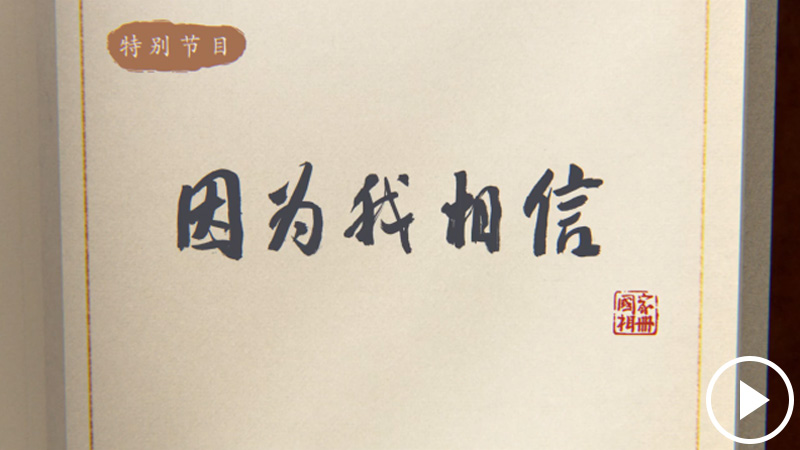 特别节目
因为我相信
國家相冊